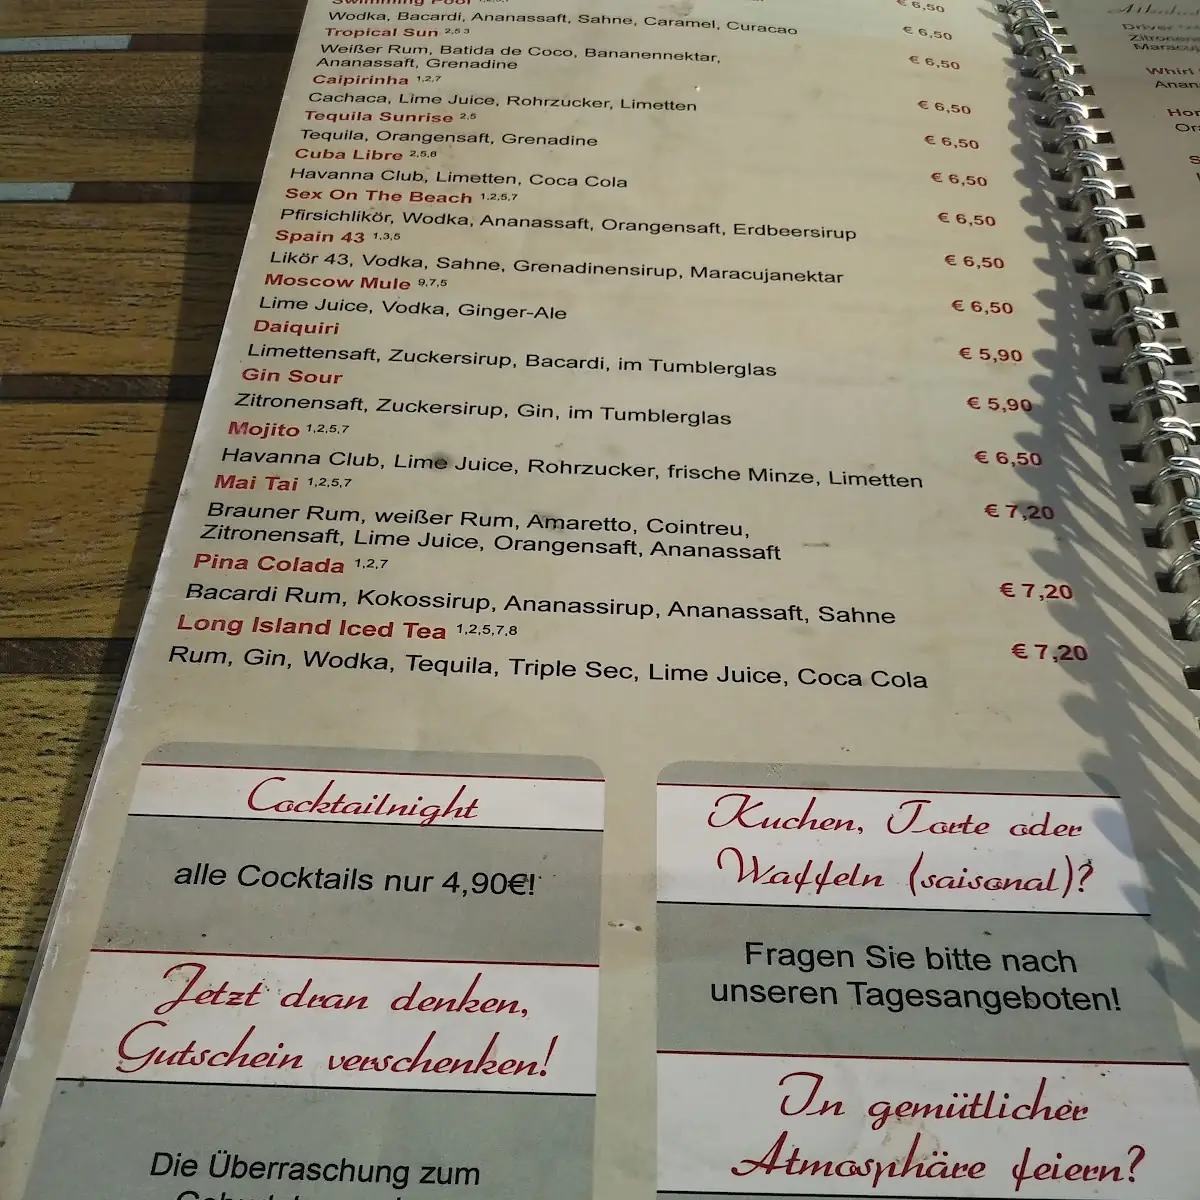 Swimming Pool
€ 6,50
Wodka, Bacardi, Ananassaft, Sahne, Caramel, Curacao
Tropical Sun 2,5 3
€ 6,50
Weißer Rum, Batida de Coco, Bananennektar,
Ananassaft, Grenadine
€ 6,50
Caipirinha 1,2,7
Cachaca, Lime Juice, Rohrzucker, Limetten
€ 6,50
Tequila Sunrise 2,5
Tequila, Orangensaft, Grenadine
€ 6,50
Cuba Libre 2,5,8
Havanna Club, Limetten, Coca Cola
€ 6,50
Sex On The Beach 1,2,5,7
Pfirsichlikör, Wodka, Ananassaft, Orangensaft, Erdbeersirup
€ 6,50
Spain 43 1,3,5
Likör 43, Vodka, Sahne, Grenadinensirup, Maracujanektar
€ 6,50
Moscow Mule 9,7,5
Lime Juice, Vodka, Ginger-Ale
€ 6,50
Daiquiri
Limettensaft, Zuckersirup, Bacardi, im Tumblerglas
€ 5,90
Gin Sour
Zitronensaft, Zuckersirup, Gin, im Tumblerglas
€ 5,90
Mojito 1,2,5,7
Havanna Club, Lime Juice, Rohrzucker, frische Minze, Limetten
€ 6,50
Mai Tai 1,2,5,7
€ 7,20
Brauner Rum, weißer Rum, Amaretto, Cointreu,
Zitronensaft, Lime Juice, Orangensaft, Ananassaft
Pina Colada 1,2,7
€ 7,20
Bacardi Rum, Kokossirup, Ananassirup, Ananassaft, Sahne
Long Island Iced Tea 1,2,5,7,8
€ 7,20
Rum, Gin, Wodka, Tequila, Triple Sec, Lime Juice, Coca Cola
Cocktailnight
alle Cocktails nur 4,90€!
Jetzt dran denken,
Gutschein verschenken!
Die Überraschung zum
Kuchen, Torte oder
Waffeln (saisonal)?
Fragen Sie bitte nach
unseren Tagesangeboten!
In gemütlicher
Atmosphäre feiern?
Driver
Whirl